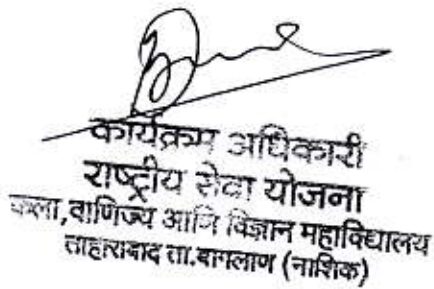 कार्यक्रम अधिकारी
राष्ट्रीय सेवा योजना
कला,वाणिज्य आणि विज्ञान महाविद्यालय
ताहाराबाद ता.बागलाण (नाशिक)